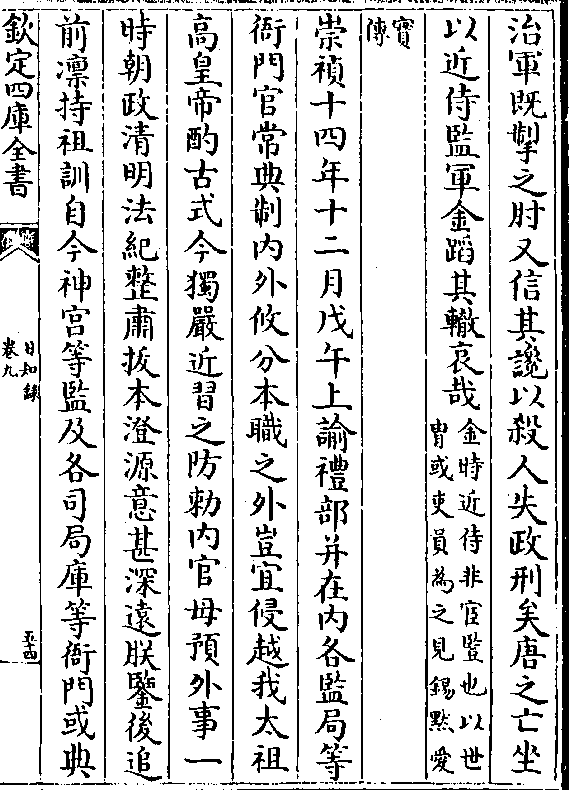 治軍既掣之肘又信其讒以殺人失政刑矣唐之亡坐
以近侍監軍金蹈其轍哀哉金時近侍非宦豎也以世
胄或吏員為之見錫黙愛
寶
傳
崇禎十四年十二月戊午上諭禮部并在内各監局等
衙門官常典制内外攸分本職之外豈宜侵越我太祖
高皇帝酌古式今獨嚴近習之防勅内官毋預外事一
時朝政清明法紀整肅拔本澄源意甚深遠朕鑒後追
前凛持祖訓自今神宫等監及各司局庫等衙門或典
欽定四庫全書
日知錄
卷九
五十四